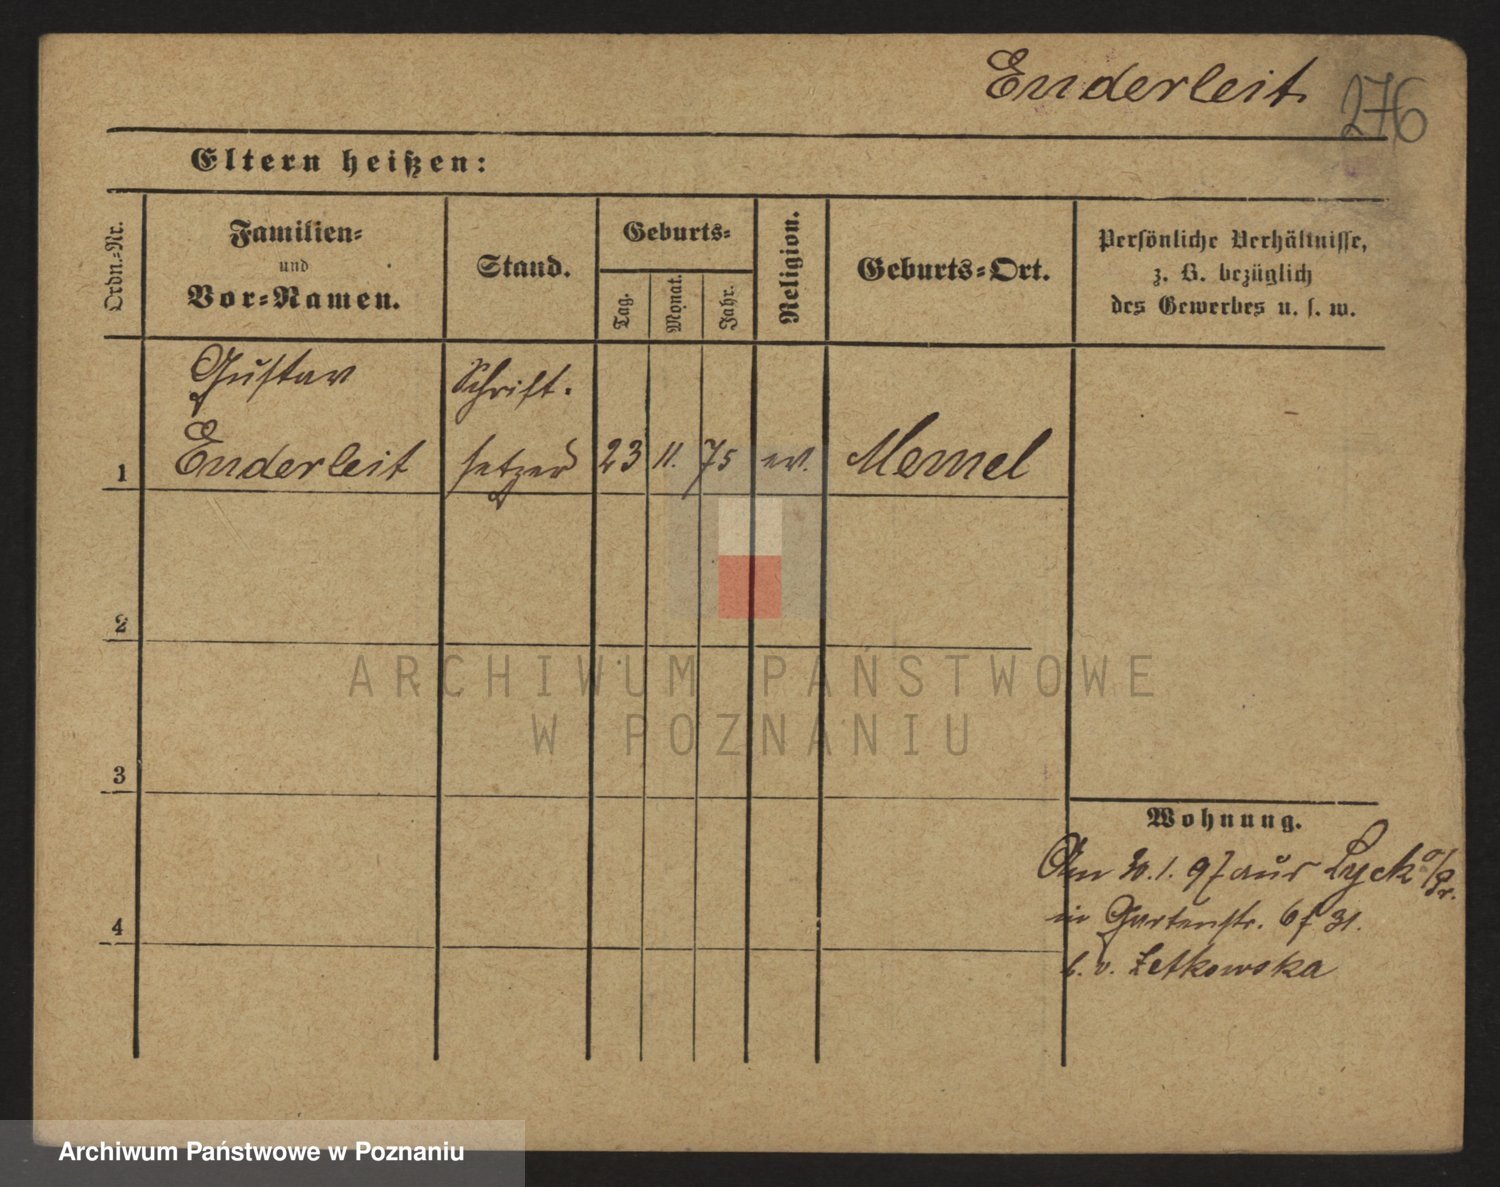 Enderleit
276
Eltern heißen:
Ordn.-Nr.
Familien-
und
Vor-Namen.
Stand.
Geburts-
Tag.
Monat.
Jahr.
Religion.
Geburts-Ort.
Persönliche Verhältnisse,
z. B. bezüglich
des Gewerbes u. s. w.
Gustav Schrift.
1 Enderleit setzer 23 11. 75 ev. Memel
2
ARCHIWUM PAŃSTWOWE
W POZNANIU
3
Wohnung.
Am 30.1.97 aus Lyck o/Pr.
4
in Gartenstr. 31.
b. v. Zetkowska
Archiwum Państwowe w Poznaniu